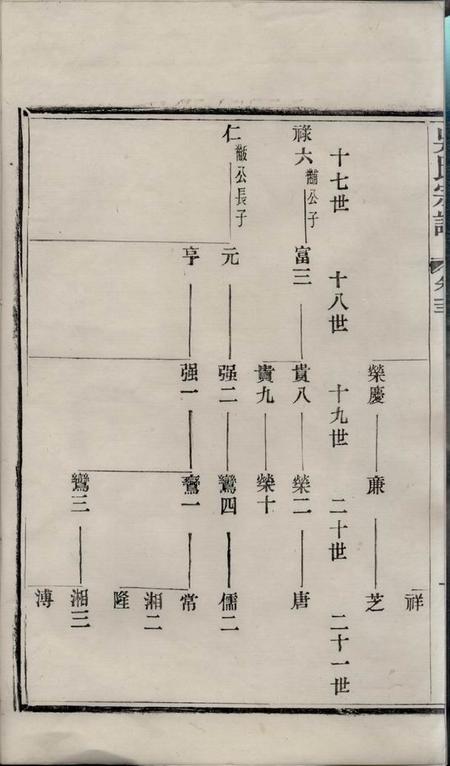 吳氏宗譜 卷三
祥
榮慶 廉 芝
十七世 十八世 十九世 二十世 二十一世
祿六 黼公子 富三 貴八 榮二 唐
貴九 榮十
仁 黻公長子 元 强二 鸞四 儒二
亨 强一 鸞一 常
湘二
隆
鸞三 湘三
溥